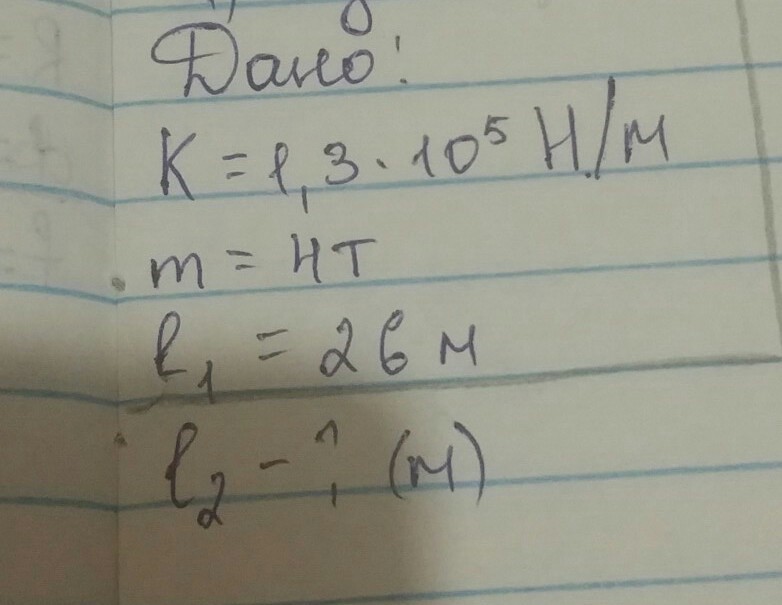 Дано:
K = 1,3 · 10⁵ Н/м
m = 4т
l₁ = 26 м
l₂ - ? (м)